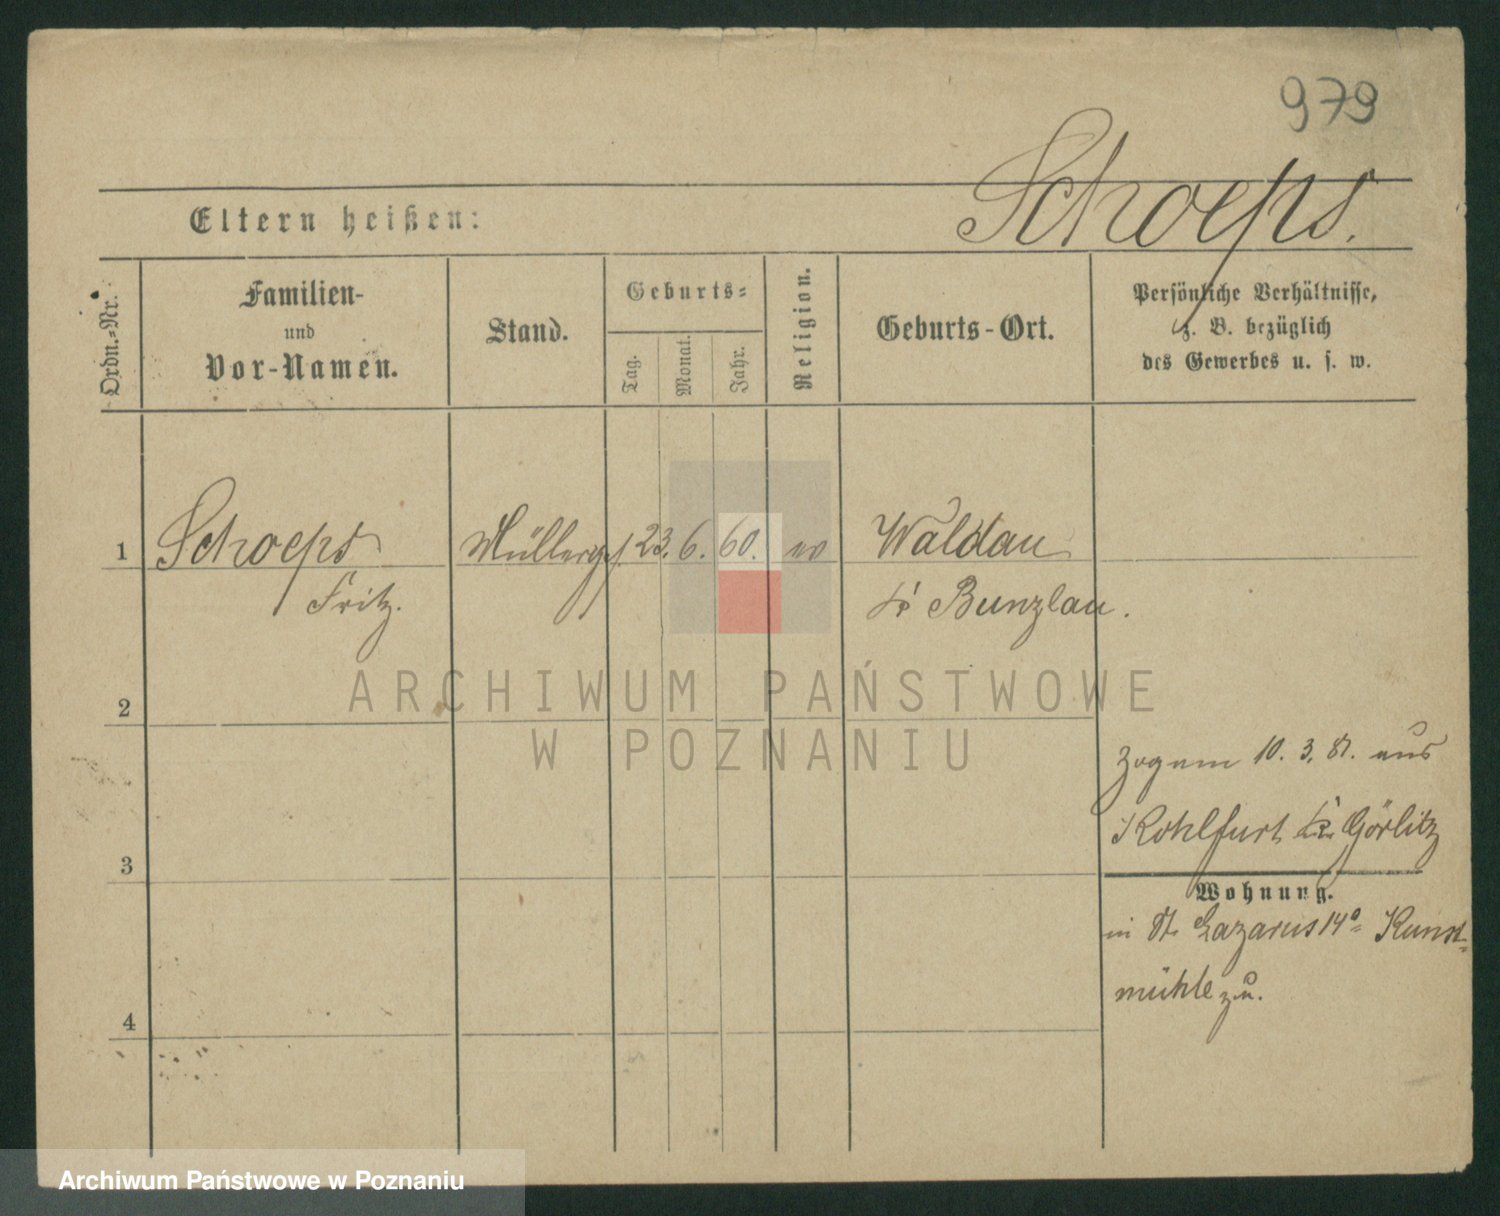 979
Schoeps.
Eltern heißen:
Ordn.-Nr.
Familien-
und
Vor-Namen.
Stand.
Geburts-
Tag.
Monat.
Jahr.
Religion.
Geburts-Ort.
Persönliche Verhältnisse,
z. B. bezüglich
des Gewerbes u. s. w.
1 Schoeps Müllerges. 23. 6. 60. ev Waldau
Fritz. Kr Bunzlau.
ARCHIWUM PAŃSTWOWE
W POZNANIU
2
zog am 10. 3. 81. aus
Kohlfurt Kr Görlitz
3
Wohnung.
in St. Lazarus 14 Kunst-
mühle zu.
4
Archiwum Państwowe w Poznaniu